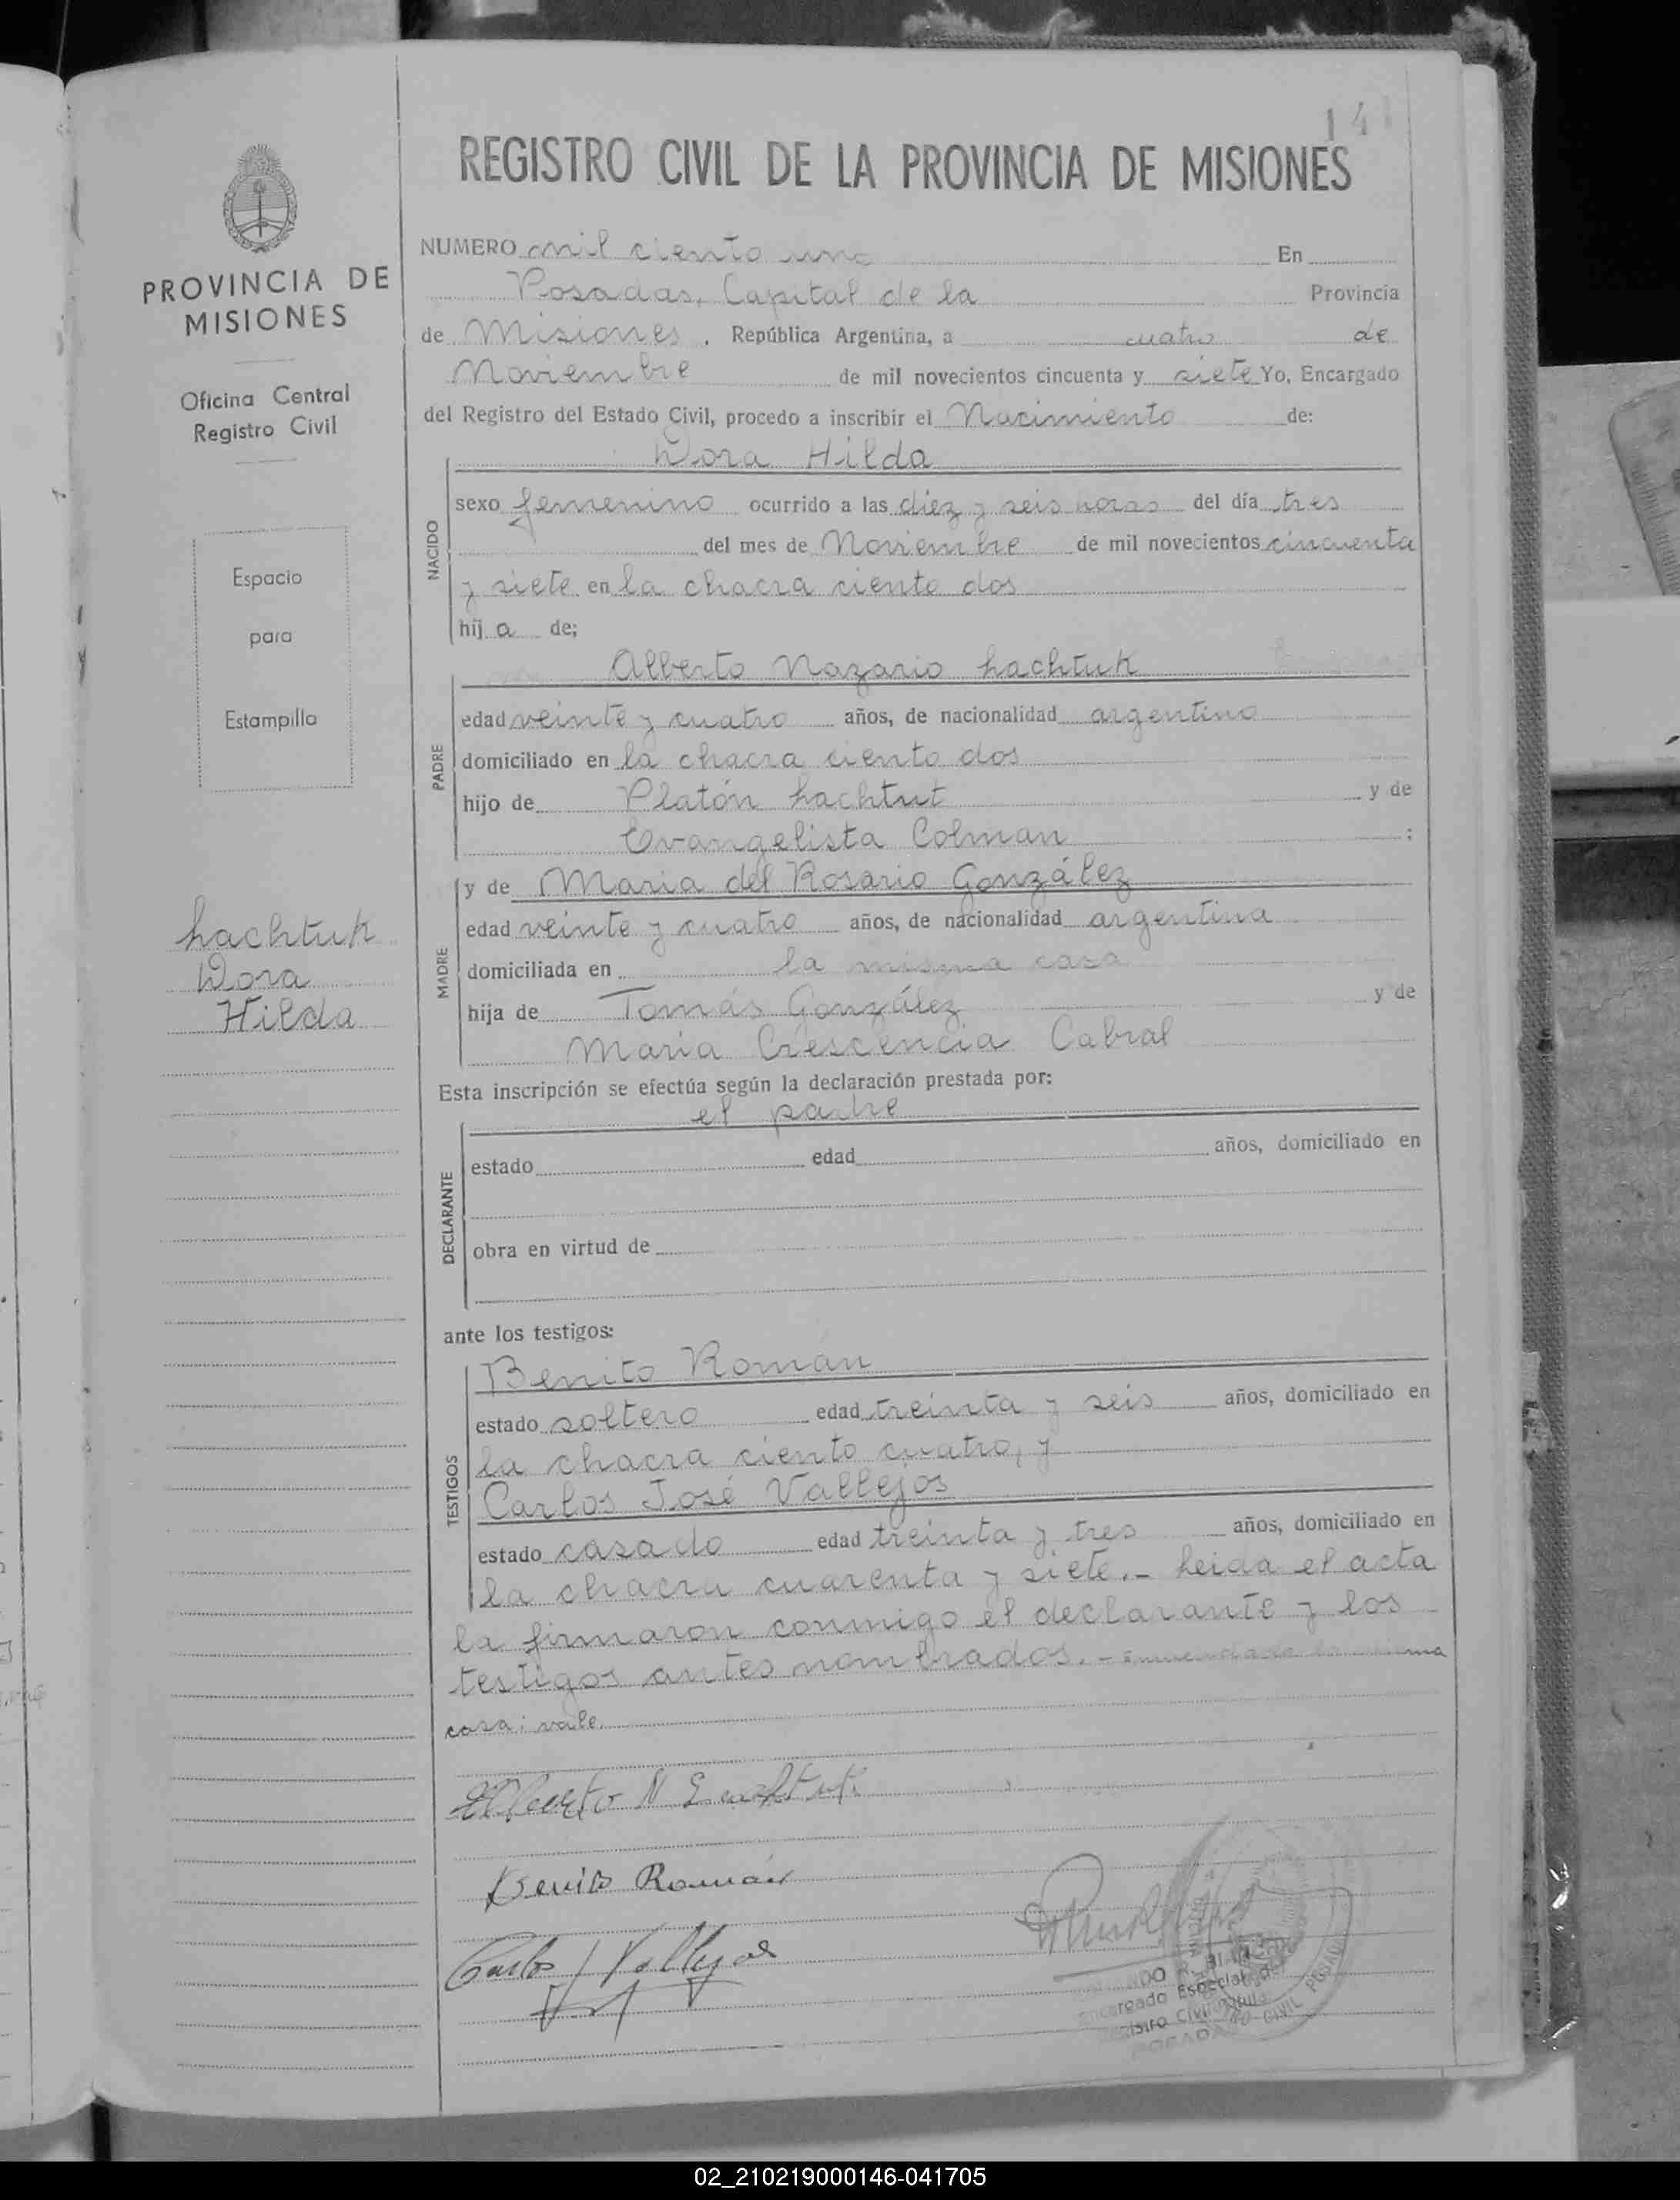 141
REGISTRO CIVIL DE LA PROVINCIA DE MISIONES
PROVINCIA DE
MISIONES
Oficina Central
Registro Civil
Espacio
para
Estampilla
Lachtuk
Dora
Hilda
NUMERO mil ciento uno En
Posadas, Capital de la Provincia
de Misiones, República Argentina, a cuatro de
Noviembre de mil novecientos cincuenta y siete Yo, Encargado
del Registro del Estado Civil, procedo a inscribir el Nacimiento de:
Dora Hilda
NACIDO
sexo femenino ocurrido a las diez y seis horas del día tres
del mes de Noviembre de mil novecientos cincuenta
y siete en la chacra ciento dos
hij a de;
Alberto Nazario Lachtuk
PADRE
edad veinte y cuatro años, de nacionalidad argentino
domiciliado en la chacra ciento dos
hijo de Platón Lachtut y de
Evangelista Colman ;
y de Maria del Rosario González
MADRE
edad veinte y cuatro años, de nacionalidad argentina
domiciliada en la misma casa
hija de Tomás González y de
Maria Crescencia Cabral
Esta inscripción se efectúa según la declaración prestada por:
el padre
DECLARANTE
estado edad años, domiciliado en
obra en virtud de
ante los testigos:
Benito Román
TESTIGOS
estado soltero edad treinta y seis años, domiciliado en
la chacra ciento cuatro, y
Carlos José Vallejos
estado casado edad treinta y tres años, domiciliado en
la chacra cuarenta y siete.- Leida el acta
la firmaron conmigo el declarante y los
testigos antes nombrados.- Enmendado la misma
casa: vale.
Alberto N Lachtuk
Benito Román
Carlos J Vallejos
Encargado Especial del
Registro Civil
POSADAS
CIVIL POSADAS
02_210219000146-041705